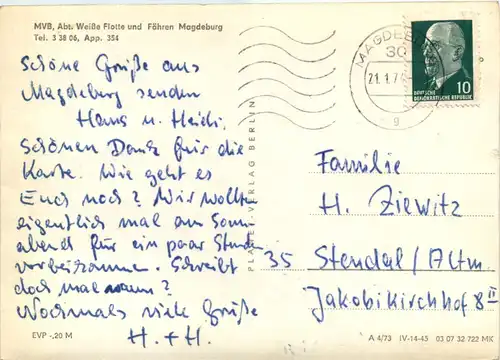 MVB, Abt. Weiße Flotte und Föhren Magdeburg
Tel. 3 38 06, App. 354
Schöne Grüße aus
Magdeburg senden
Hans u. Heidi.
Schönen Dank für die
Karte. Wie geht es
Euch noch? Wir wollten
eigentlich mal am Sonn
abend für ein paar Stunden
vorbeikommen. Schreibt
doch mal wann?
Nochmals viele Grüße
H. + H.
EVP -,20 M
PLANET-VERLAG BERLIN
MAGDEBURG
30
21.1.7
g
10
DEUTSCHE
DEMOKRATISCHE REPUBLIK
Familie
H. Ziewitz
35 Stendal/Altm.
Jakobikirchhof 8 II
A 4/73 IV-14-45 03 07 32 722 MK